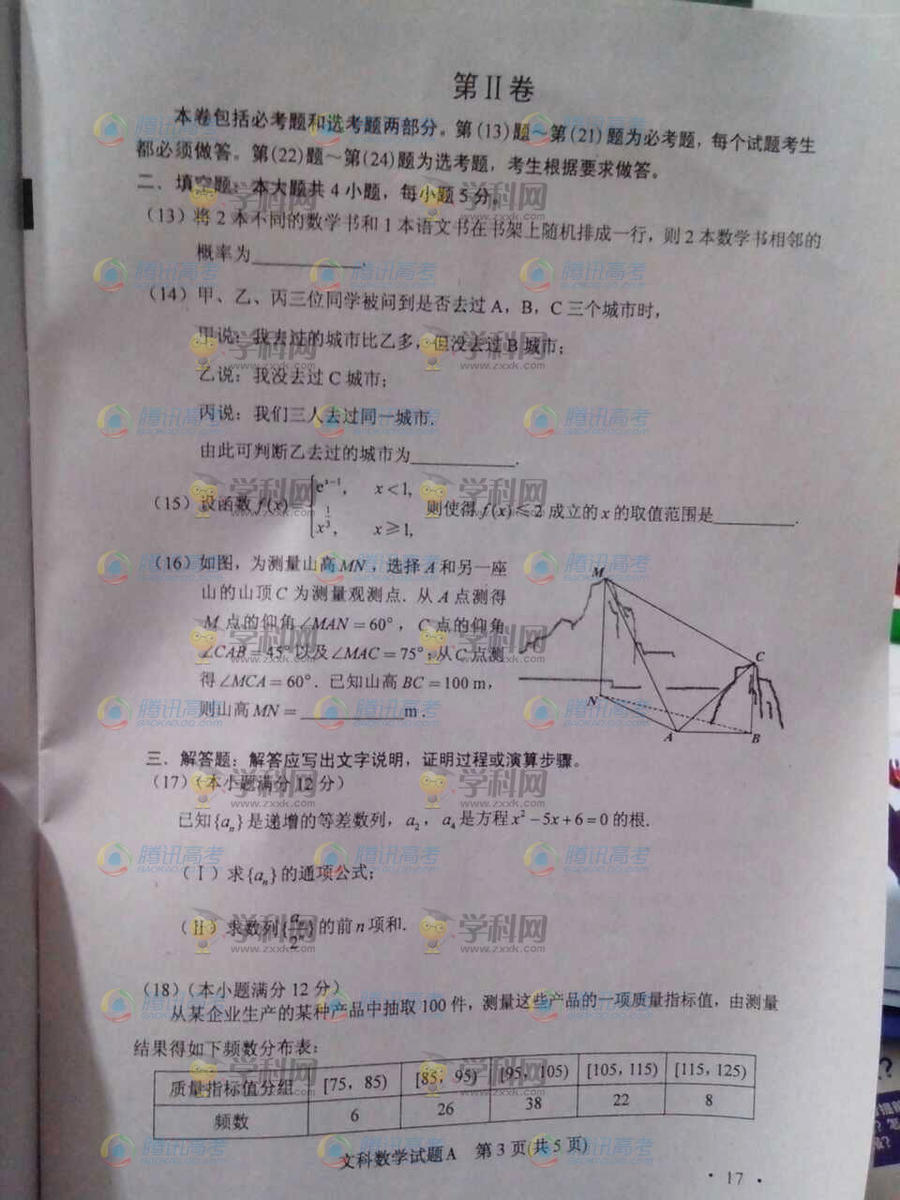 第Ⅱ卷
本卷包括必考题和选考题两部分。第(13)题～第(21)题为必考题，每个试题考生
都必须做答。第(22)题～第(24)题为选考题，考生根据要求做答。
二、填空题：本大题共4小题，每小题5分。
（13）将2本不同的数学书和1本语文书在书架上随机排成一行，则2本数学书相邻的
概率为__________.
（14）甲、乙、丙三位同学被问到是否去过A，B，C三个城市时，
甲说：我去过的城市比乙多，但没去过B城市；
乙说：我没去过C城市；
丙说：我们三人去过同一城市.
由此可判断乙去过的城市为__________.
（15）设函数 f(x)={e^{x-1}, x<1, x^{1/3}, x≥1, 则使得 f(x)≤2 成立的 x 的取值范围是________.
（16）如图，为测量山高MN，选择A和另一座
山的山顶C为测量观测点. 从A点测得
M点的仰角∠MAN=60°，C点的仰角
∠CAB=45°以及∠MAC=75°；从C点测
得∠MCA=60°. 已知山高BC=100 m，
则山高MN=__________m.
M
C
N
A
B
三、解答题：解答应写出文字说明，证明过程或演算步骤。
（17）（本小题满分12分）
已知{a_n}是递增的等差数列，a_2，a_4是方程x²-5x+6=0的根.
（Ⅰ）求{a_n}的通项公式；
（Ⅱ）求数列{a_n/2^n}的前n项和.
（18）（本小题满分12分）
从某企业生产的某种产品中抽取100件，测量这些产品的一项质量指标值，由测量
结果得如下频数分布表：
质量指标值分组 [75，85) [85，95) [95，105) [105，115) [115，125)
频数 6 26 38 22 8
文科数学试题A 第3页(共5页)
·17·
腾讯高考
GAOKAO.QQ.COM
学科网
www.zxxk.com